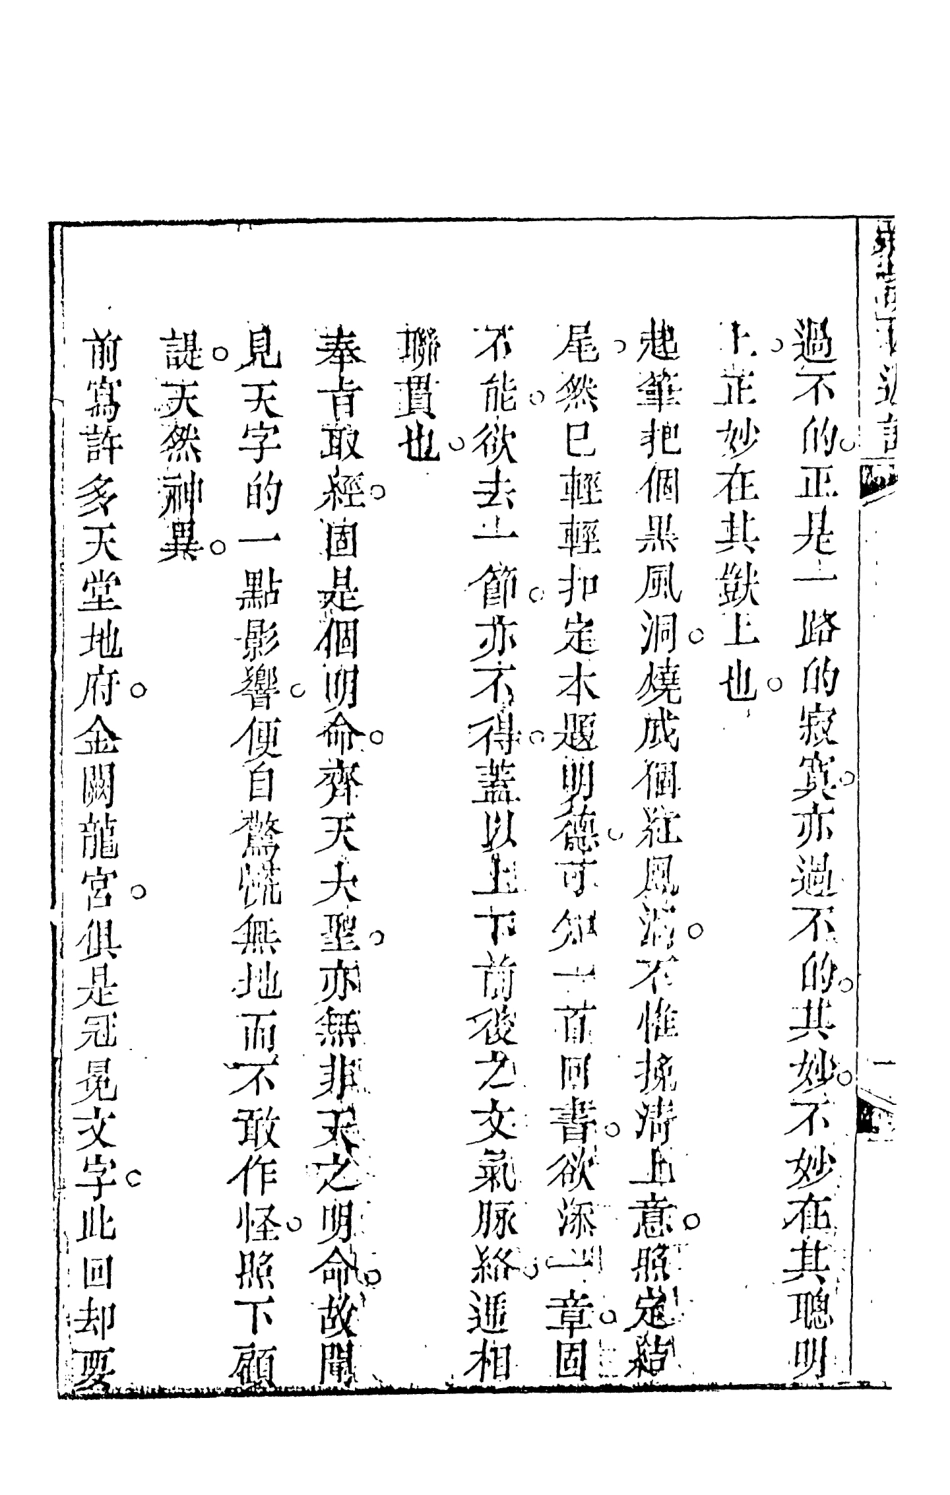 過不的。正是一路的寂寞。亦過不的。其妙。不妙在其聰明
上。正妙在其獃上也。
起筆把個黑風洞。燒成個紅風洞。不惟挽淸上意。照定結
尾。然已輕輕扣定本題明德。可知一首回書。欲添一章。固
不能。欲去一節。亦不得。蓋以上下前後之文氣脉絡。遞相
聯貫也。
奉旨取經。固是個明命。齊天大聖。亦無非天之明命。故聞
見天字的一點影響。便自驚慌無地而不敢作怪。照下顧
諟。天然神異。
前寫許多天堂地府。金闕龍宮。俱是冠冕文字。此回却要